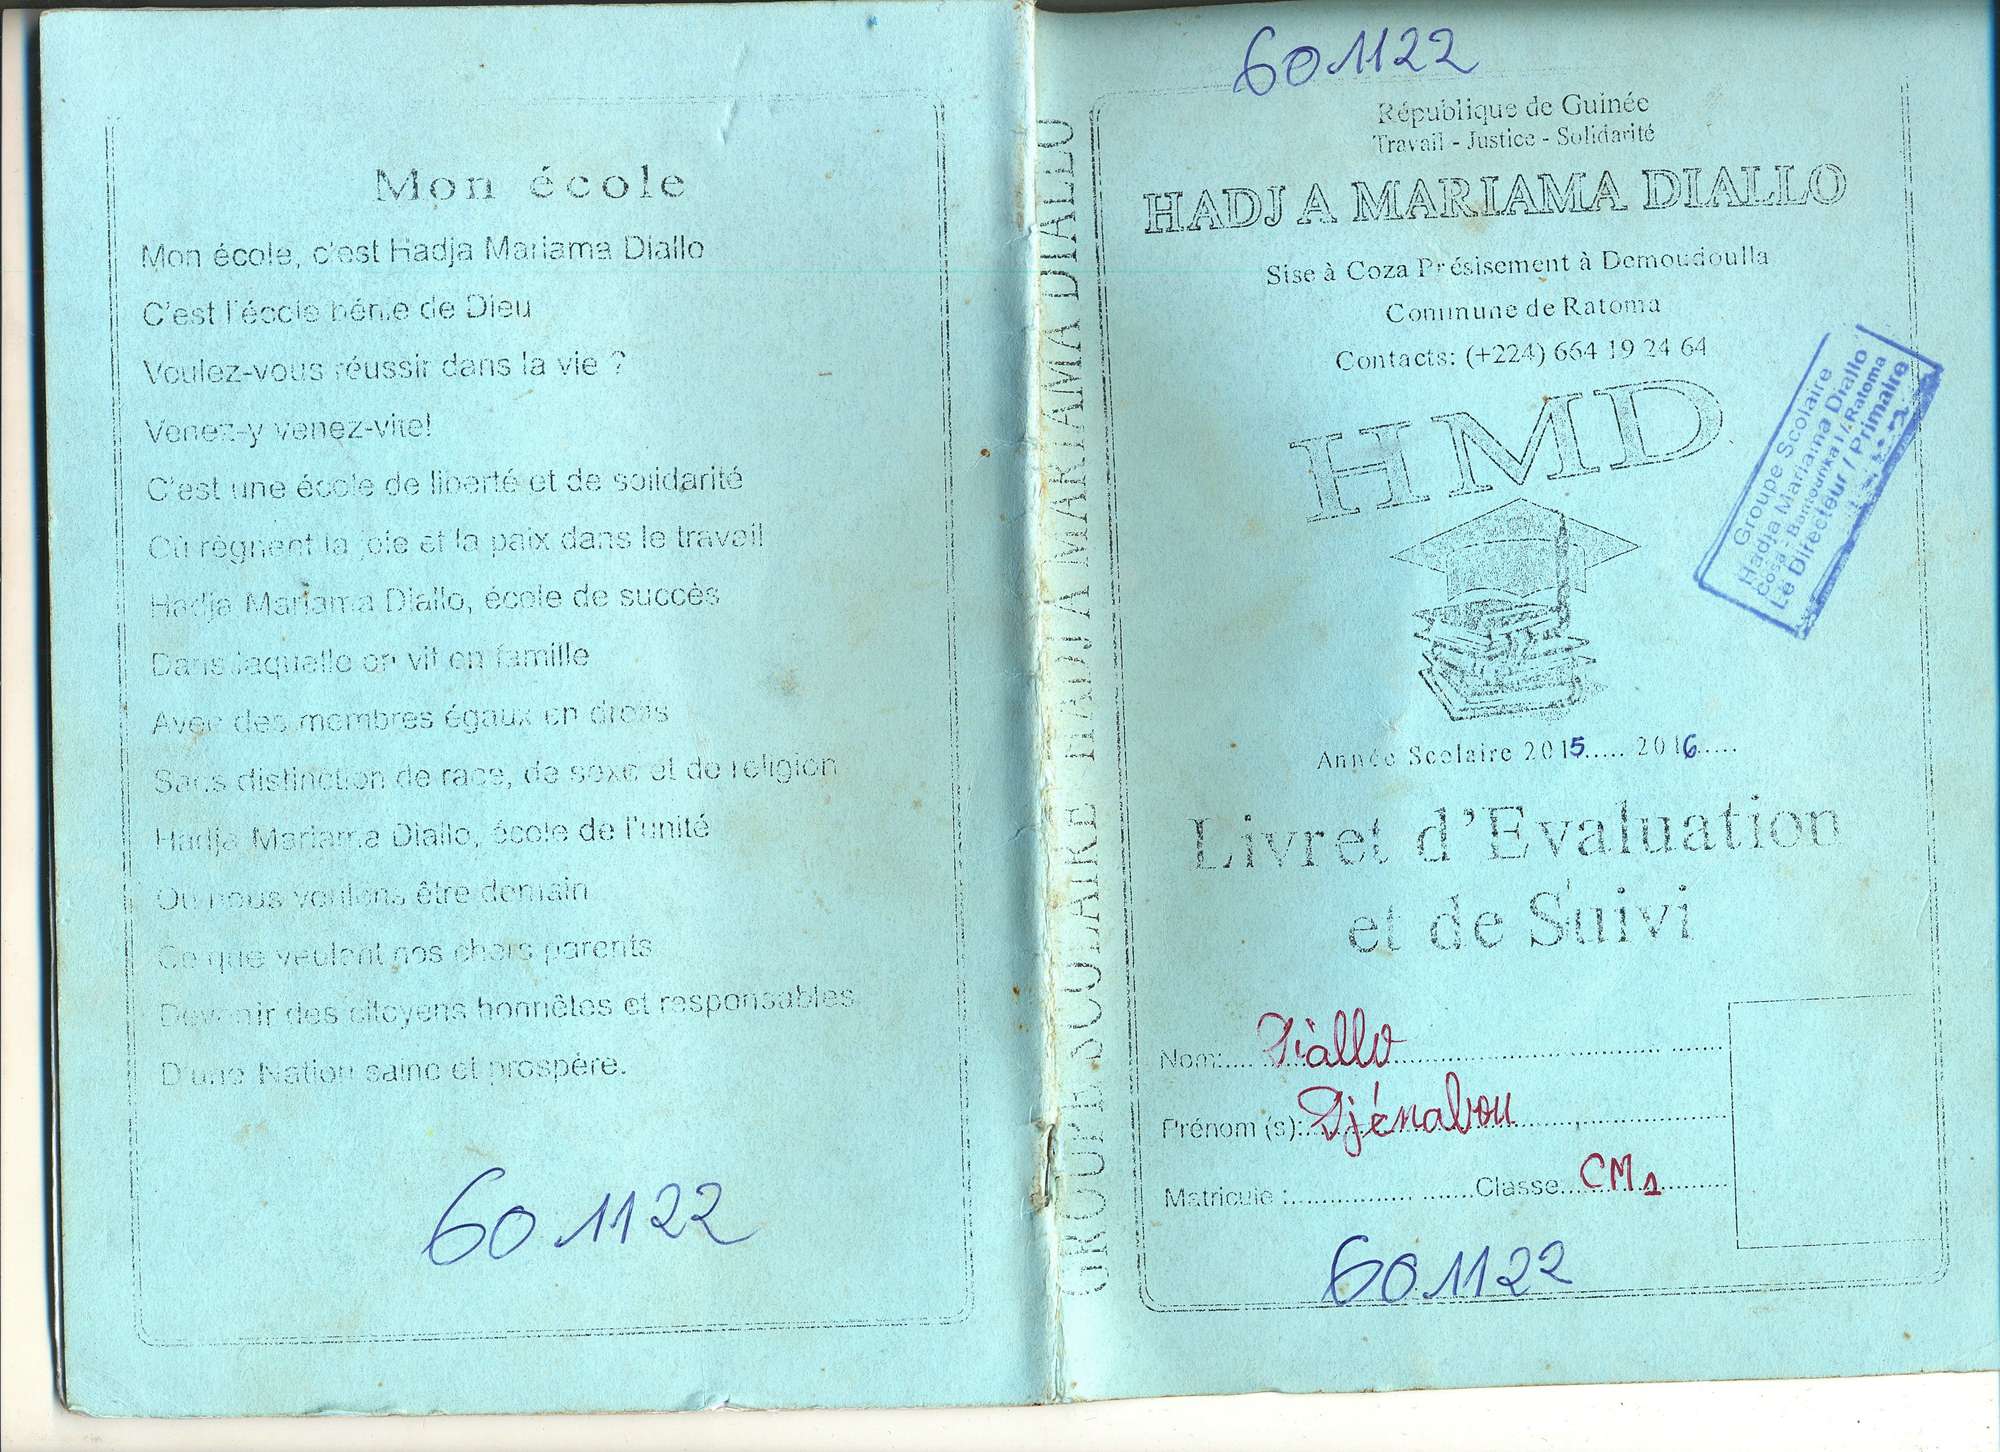 Mon école
Mon école, c'est Hadja Mariama Diallo
C'est l'école bénie de Dieu
Voulez-vous réussir dans la vie ?
Venez-y venez-vite!
C'est une école de liberté et de solidarité
Où règnent la joie et la paix dans le travail
Hadja Mariama Diallo, école de succès
Dans laquelle on vit en famille
Avec des membres égaux en droits
Sans distinction de race, de sexe et de religion
Hadja Mariama Diallo, école de l'unité
Où nous voulons être demain
Ce que veulent nos chers parents
Devenir des citoyens honnêtes et responsables
D'une Nation saine et prospère.
601122
GROUPE SCOLAIRE HADJA MARIAMA DIALLO
601122
République de Guinée
Travail - Justice - Solidarité
HADJA MARIAMA DIALLO
Sise à Coza Présisement à Demoudoulla
Commune de Ratoma
Contacts: (+224) 664 19 24 64
HMD
Groupe Scolaire
Hadja Mariama Diallo
Cosa - / Ratoma
Le Directeur / Primaire
Année Scolaire 2015..... 2016.....
Livret d'Evaluation
et de Suivi
Nom:.... Diallo
Prénom (s): Djénabou
Matricule :.................. .......Classe... CM1
601122